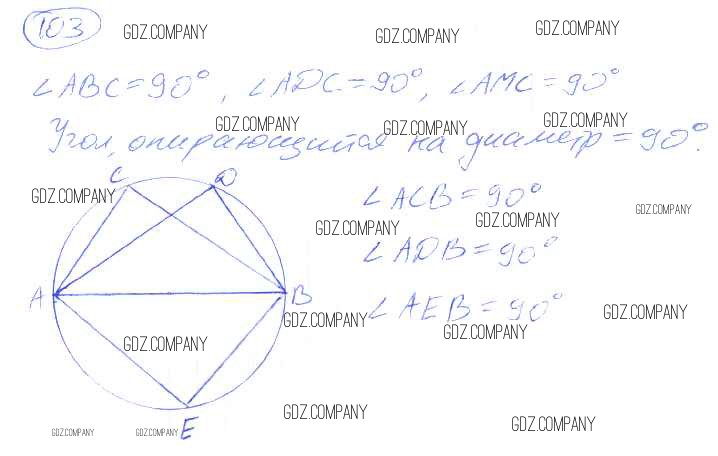 103
GDZ.COMPANY GDZ.COMPANY GDZ.COMPANY
∠ABC=90°, ∠ADC=90°, ∠AMC=90°
GDZ.COMPANY GDZ.COMPANY GDZ.COMPANY
Угол, опирающийся на диаметр=90°.
C D
GDZ.COMPANY
∠ACB=90°
GDZ.COMPANY GDZ.COMPANY GDZ.COMPANY
∠ADB=90°
A B
∠AEB=90°
GDZ.COMPANY GDZ.COMPANY GDZ.COMPANY
GDZ.COMPANY
GDZ.COMPANY GDZ.COMPANY
GDZ.COMPANY GDZ.COMPANY E